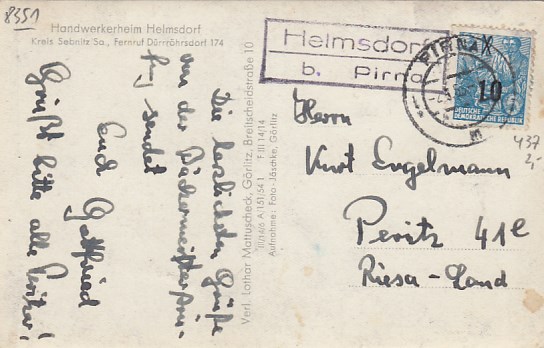 8351
Handwerkerheim Helmsdorf
Kreis Sebnitz Sa., Fernruf Dürrröhrsdorf 174
Helmsdorf
b. Pirna
PIRNA
10
DEUTSCHE
DEMOKRATISCHE REPUBLIK
437
2,-
Die herzlichsten Grüße
von der Bäckermeisterprü-
fg sendet
Euch Gottfried
Grüßt bitte alle
Verl. Lothar Mattuscheck, Görlitz, Breitscheidstraße 10
III/14/6 A/151/54 1 F III 14/14
Aufnahme: Foto-Jäschke, Görlitz
Herrn
Kurt Engelmann
Peritz 41e
Riesa-Land